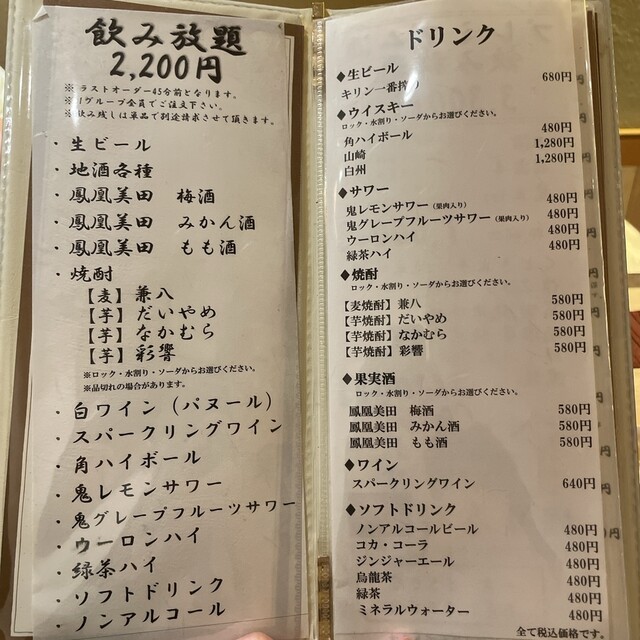 飲み放題
2,200円
※ラストオーダー45分前となります。
※1グループ全員でご注文下さい。
※飲み残しは単品で別途請求させて頂きます。
・生ビール
・地酒各種
・鳳凰美田 梅酒
・鳳凰美田 みかん酒
・鳳凰美田 もも酒
・焼酎
【麦】兼八
【芋】だいやめ
【芋】なかむら
【芋】彩響
※ロック・水割り・ソーダからお選びください。
※品切れの場合があります。
・白ワイン(パヌール)
・スパークリングワイン
・角ハイボール
・鬼レモンサワー
・鬼グレープフルーツサワー
・ウーロンハイ
・緑茶ハイ
・ソフトドリンク
・ノンアルコール
ドリンク
◆生ビール
キリン一番搾り 680円
◆ウイスキー
ロック・水割り・ソーダからお選びください。
角ハイボール 480円
山崎 1,280円
白州 1,280円
◆サワー
鬼レモンサワー(果肉入り) 480円
鬼グレープフルーツサワー(果肉入り) 480円
ウーロンハイ 480円
緑茶ハイ 480円
◆焼酎
ロック・水割り・ソーダからお選びください。
【麦焼酎】兼八 580円
【芋焼酎】だいやめ 580円
【芋焼酎】なかむら 580円
【芋焼酎】彩響 580円
◆果実酒
ロック・水割り・ソーダからお選びください。
鳳凰美田 梅酒 580円
鳳凰美田 みかん酒 580円
鳳凰美田 もも酒 580円
◆ワイン
スパークリングワイン 640円
◆ソフトドリンク
ノンアルコールビール 480円
コカ・コーラ 480円
ジンジャーエール 480円
烏龍茶 480円
緑茶 480円
ミネラルウォーター 480円
全て税込価格です。